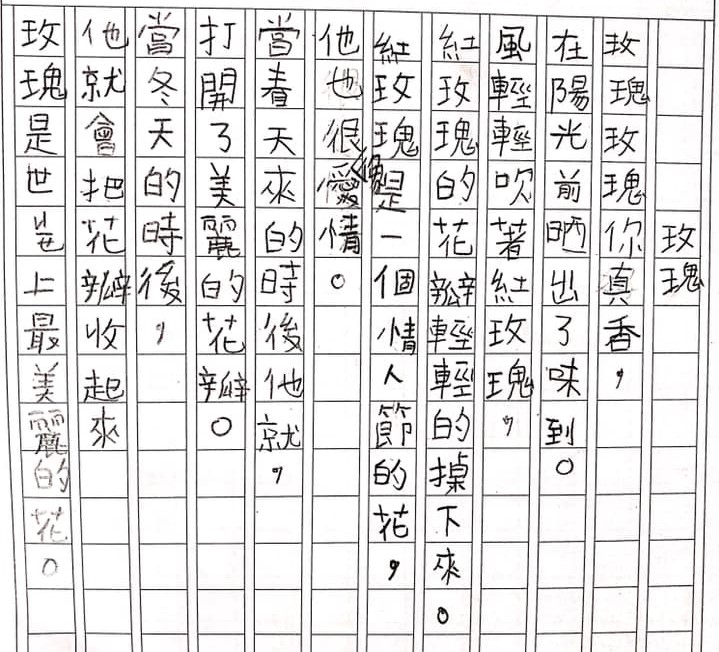 玫瑰
玫瑰玫瑰你真香，
在陽光前晒出了味到。
風輕輕吹著紅玫瑰，
紅玫瑰的花瓣輕輕的掉下來。
紅玫瑰像是一個情人節的花，
他也很愛情。
當春天來的時後他就，
打開了美麗的花瓣。
當冬天的時後，
他就會把花瓣收起來
玫瑰是世上最美麗的花。